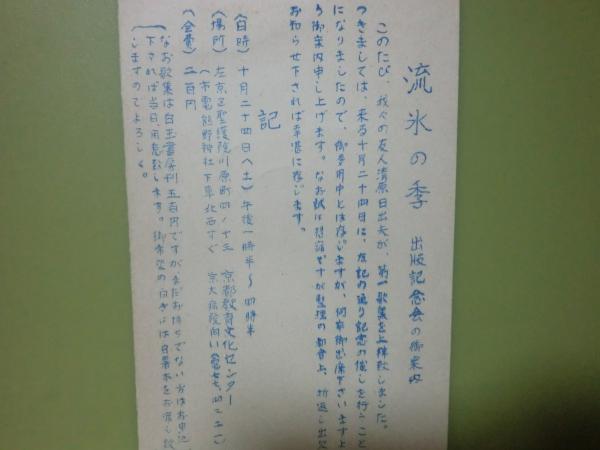 流氷の季 出版記念会の御案内
このたび、我々の友人清原日出夫が、第一歌集を上梓致しました。
つきましては、来る十月二十四日に、左記の通り記念の催しを行うこと
になりましたので、御多用中とは存じますが、何卒御出席下さいますよ
う御案内申し上げます。なお誠に恐縮ですが整理の都合上、折返し出欠
お知らせ下されば幸甚に存じます。
記
(日時) 十月二十四日(土) 午後一時半〜四時半
(場所) 左京区聖護院川原町四ノ十三 京都教育文化センター
(市電熊野神社下車北西すぐ 京大病院向い
(会費) 二百円
(なお歌集は白玉書房刊五百円ですがまだお持ちでない方はお申込
下されば当日用意致します。御希望の向きには自署本をお渡し致
しますのでよろしく。